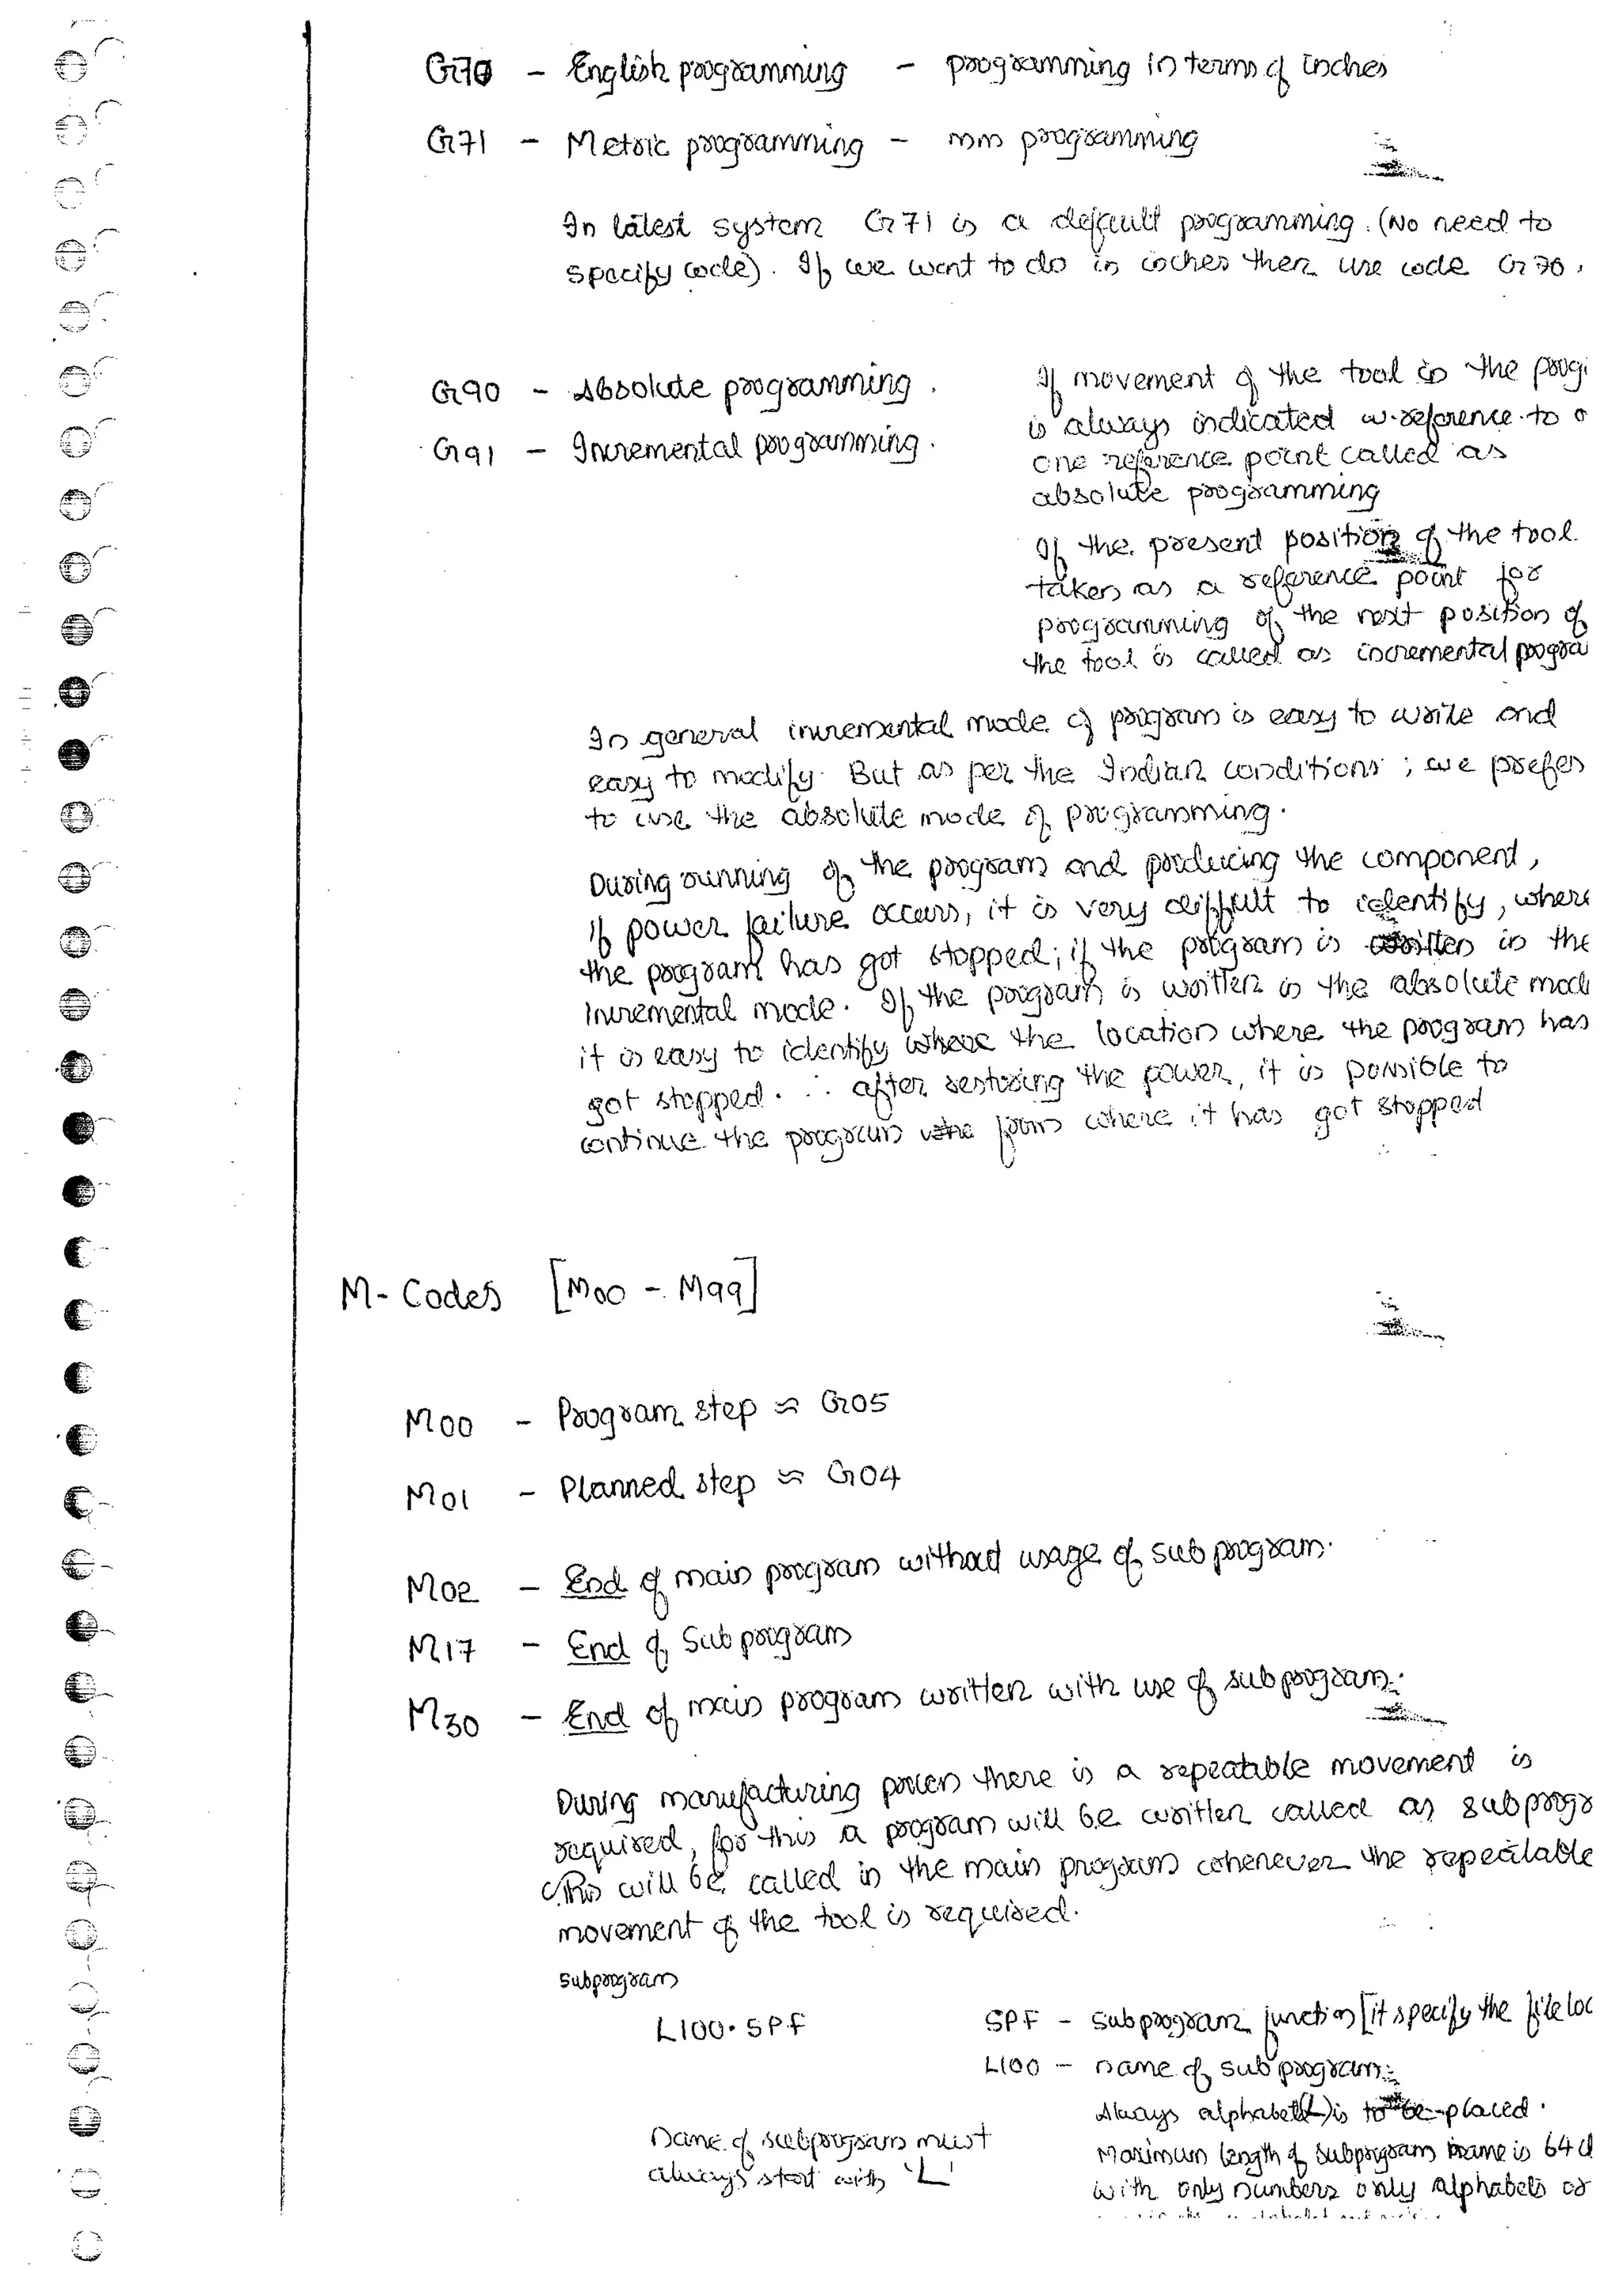 G70 - English programming - programming in terms of inches
G71 - Metric programming - mm programming
In latest system G71 is a default programming. (No need to
specify code). If we want to do in inches then use code G70.
G90 - Absolute programming.
G91 - Incremental programming.
If movement of the tool in the progr
is always indicated w.reference to o
one reference point called as
absolute programming
If the present position of the tool
taken as a reference point for
programming of the next position of
the tool is called as incremental progra
In general incremental mode of program is easy to write and
easy to modify. But as per the Indian conditions; we prefer
to use the absolute mode of programming.
During running of the program and producing the component,
if power failure occurs, it is very difficult to identify, where
the program has got stopped; if the program is written in the
Incremental mode. If the program is written in the absolute mode
it is easy to identify where the location where the program has
got stopped. ∴ after restoring the power, it is possible to
continue the program from where it has got stopped
M-Codes [M00 - M99]
M00 - Program step ≈ G05
M01 - Planned step ≈ G04
M02 - End of main program without usage of sub program.
M17 - End of Sub program
M30 - End of main program written with use of subprogram.
During manufacturing process there is a repeatable movement is
required, for this a program will be written called as subprogr
This will be called in the main program whenever the repeatable
movement of the tool is required.
subprogram
L100.SPF
SPF - subprogram function [it specify the file loc
L100 - name of sub program.
Always alphabet (L) is to be placed.
Name of subprogram must
always start with 'L'
Maximum length of subprogram name is 64
with only numbers only alphabets or